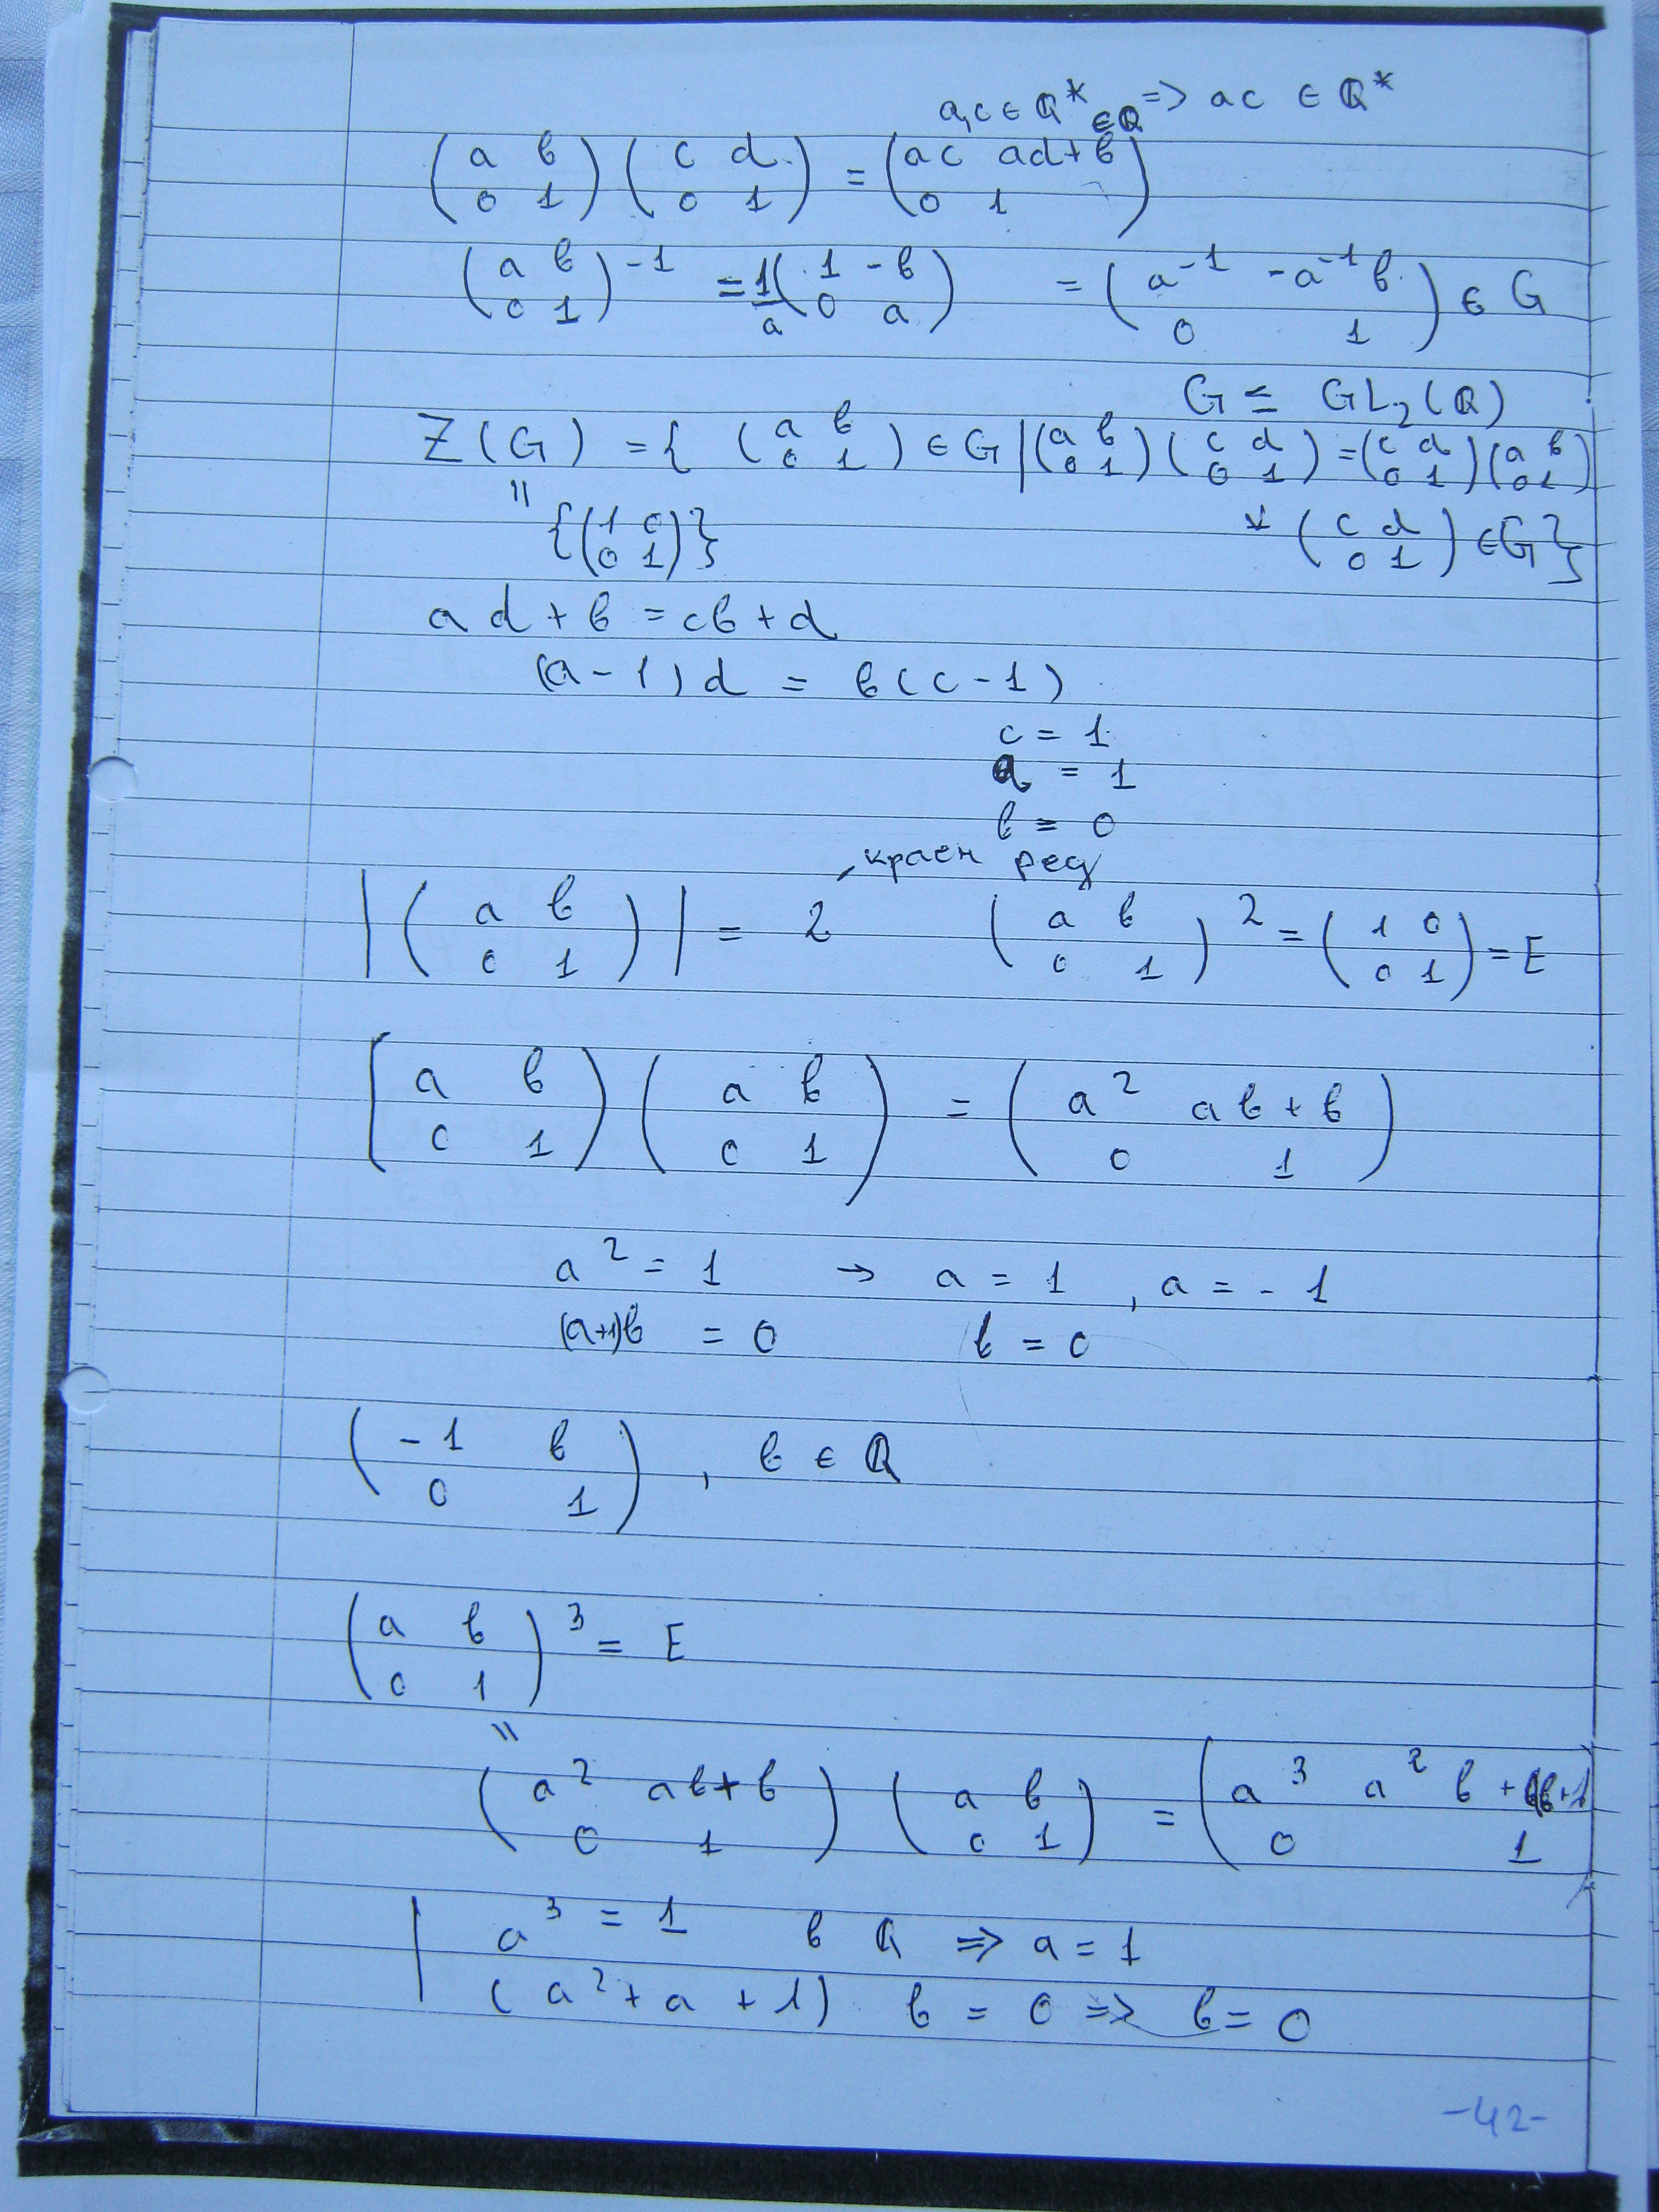 a,c ∈ Q* => ac ∈ Q*
∈Q
(a в; 0 1) (c d; 0 1) = (ac ad+в; 0 1)
(a в; 0 1)^-1 = 1/a (1 -в; 0 a) = (a^-1 -a^-1 в; 0 1) ∈ G
G ≤ GL₂(Q)
Z(G) = { (a в; 0 1) ∈ G | (a в; 0 1) (c d; 0 1) = (c d; 0 1) (a в; 0 1)
" {(1 0; 0 1)} ∀ (c d; 0 1) ∈ G }
ad + в = cв + d
(a - 1) d = в (c - 1)
c = 1
a = 1
в = 0
краен ред
| (a в; 0 1) | = 2 (a в; 0 1)^2 = (1 0; 0 1) = E
(a в; 0 1) (a в; 0 1) = (a^2 aв + в; 0 1)
a^2 = 1 → a = 1 , a = - 1
(a+1)в = 0 в = 0
(-1 в; 0 1) , в ∈ Q
(a в; 0 1)^3 = E
"
(a^2 aв + в; 0 1) (a в; 0 1) = (a^3 a^2 в +; 0 1
a^3 = 1 в Q => a = 1
(a^2 + a + 1) в = 0 => в = 0
-42-